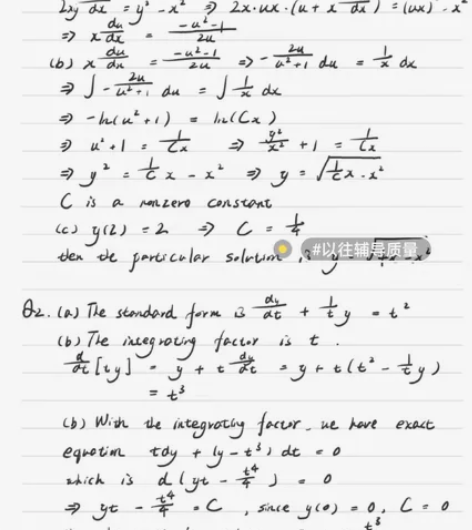 2xy dy/dx = y² - x² ⇒ 2x·ux·(u + x du/dx) = (ux)² - x²
⇒ x du/dx = (-u²-1)/2u
(b) x du/dx = (-u²-1)/2u ⇒ -2u/(u²+1) du = 1/x dx
⇒ ∫ -2u/(u²+1) du = ∫ 1/x dx
⇒ -ln(u²+1) = ln(Cx)
⇒ u²+1 = 1/Cx ⇒ y²/x² + 1 = 1/Cx
⇒ y² = 1/C x - x² ⇒ y = √(1/C x - x²)
C is a nonzero constant
(c) y(2) = 2 ⇒ C = 1/4
then the particular solution
#以往辅导质量
Q2. (a) The standard form is dy/dt + 1/t y = t²
(b) The integrating factor is t.
d/dt [ty] = y + t dy/dt = y + t(t² - 1/t y)
= t³
(b) With the integrating factor, we have exact
equation tdy + (y - t³) dt = 0
which is d(yt - t⁴/4) = 0
⇒ yt - t⁴/4 = C, since y(0) = 0, C = 0
t³